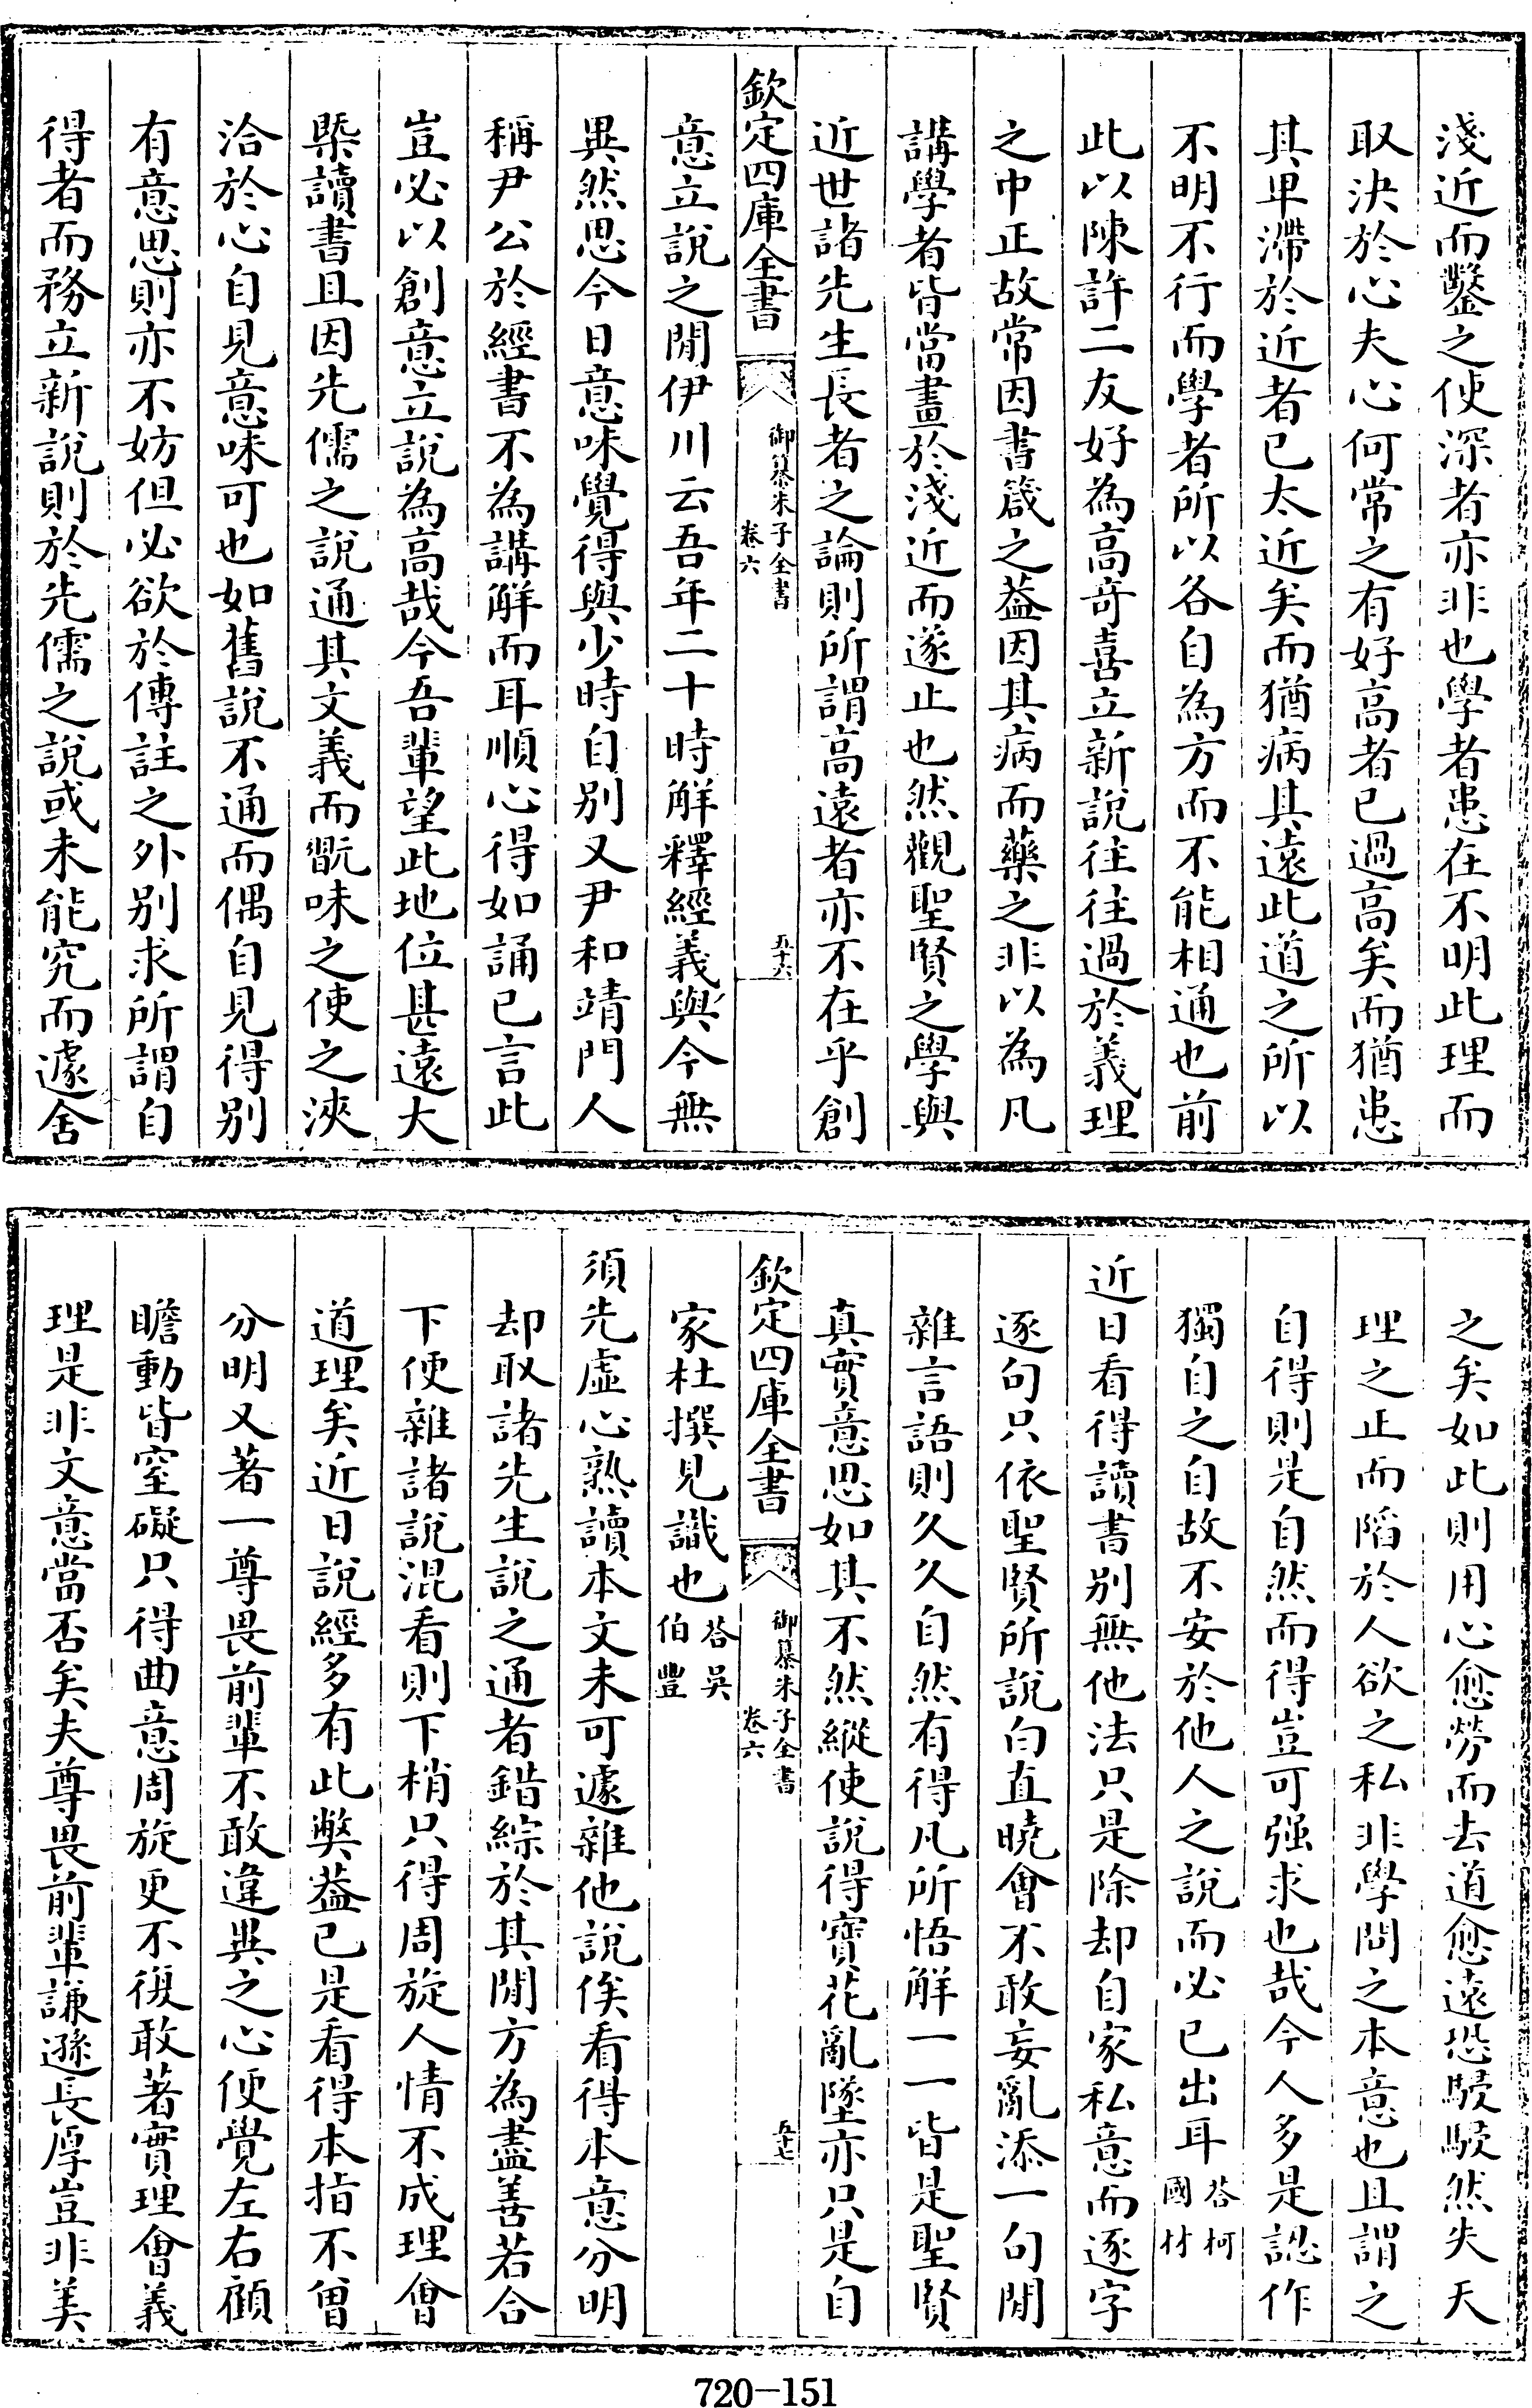 淺近而鑿之使深者亦非也學者患在不明此理而
取決於心夫心何常之有好高者已過高矣而猶患
其卑滯於近者已太近矣而猶病其遠此道之所以
不明不行而學者所以各自為方而不能相通也前
此以陳許二友好為高奇喜立新說往往過於義理
之中正故常因書箴之葢因其病而藥之非以為凡
講學者皆當畫於淺近而遂止也然觀聖賢之學與
近世諸先生長者之論則所謂高遠者亦不在乎創
欽定四庫全書
御纂朱子全書
卷六
五十六
意立說之閒伊川云吾年二十時解釋經義與今無
異然思今日意味覺得與少時自別又尹和靖門人
稱尹公於經書不為講解而耳順心得如誦已言此
豈必以創意立說為高哉今吾輩望此地位甚遠大
槩讀書且因先儒之說通其文義而翫味之使之浹
洽於心自見意味可也如舊說不通而偶自見得別
有意思則亦不妨但必欲於傳註之外別求所謂自
得者而務立新說則於先儒之說或未能究而遽舍
之矣如此則用心愈勞而去道愈遠恐駸駸然失天
理之正而陷於人欲之私非學問之本意也且謂之
自得則是自然而得豈可强求也哉今人多是認作
獨自之自故不安於他人之說而必已出耳答柯國材
近日看得讀書別無他法只是除却自家私意而逐字
逐句只依聖賢所說白直曉會不敢妄亂添一句閒
雜言語則久久自然有得凡所悟解一一皆是聖賢
真實意思如其不然縱使說得寶花亂墜亦只是自
欽定四庫全書
御纂朱子全書
卷六
五十七
家杜撰見識也答吳伯豐
須先虛心熟讀本文未可遽雜他說俟看得本意分明
却取諸先生說之通者錯綜於其閒方為盡善若合
下便雜諸說混看則下梢只得周旋人情不成理會
道理矣近日說經多有此弊葢已是看得本指不曾
分明又著一尊畏前輩不敢違異之心便覺左右顧
瞻動皆窒礙只得曲意周旋更不復敢著實理會義
理是非文意當否矣夫尊畏前輩謙遜長厚豈非美
720-151